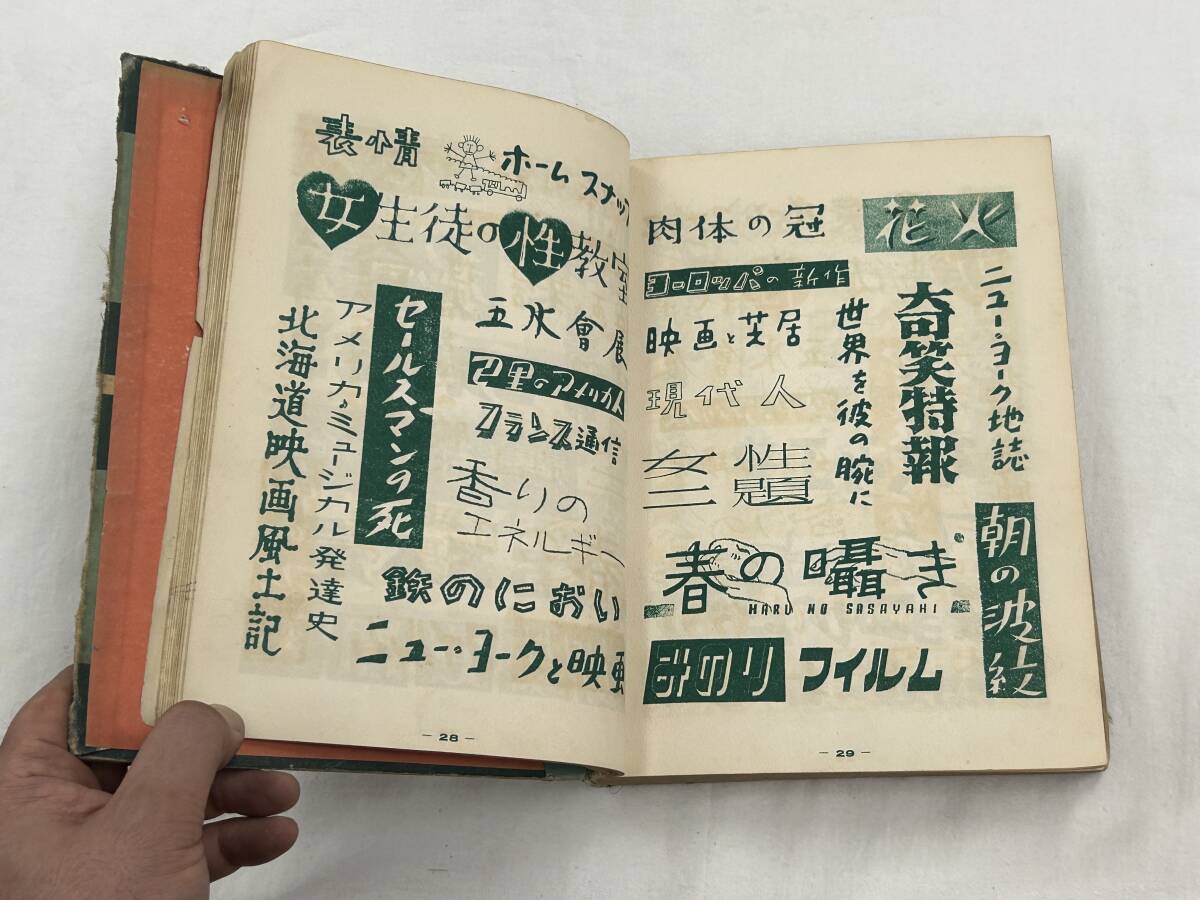 表情
ホームスナップ
女生徒の性教室
五水會展
巴里のアメリカ人
フランス通信
香りの
エネルギー
セールスマンの死
アメリカ・ミュージカル発達史
北海道映画風土記
鉄のにおい
ニュー・ヨークと映画
— 28 —
肉体の冠
花火
ヨーロッパの新作
映画と芝居
現代人
女性
二題
世界を彼の腕に
奇笑特報
ニュー・ヨーク地誌
春の囁き
HARU NO SASAYAKI
朝の波紋
みのり
フイルム
— 29 —